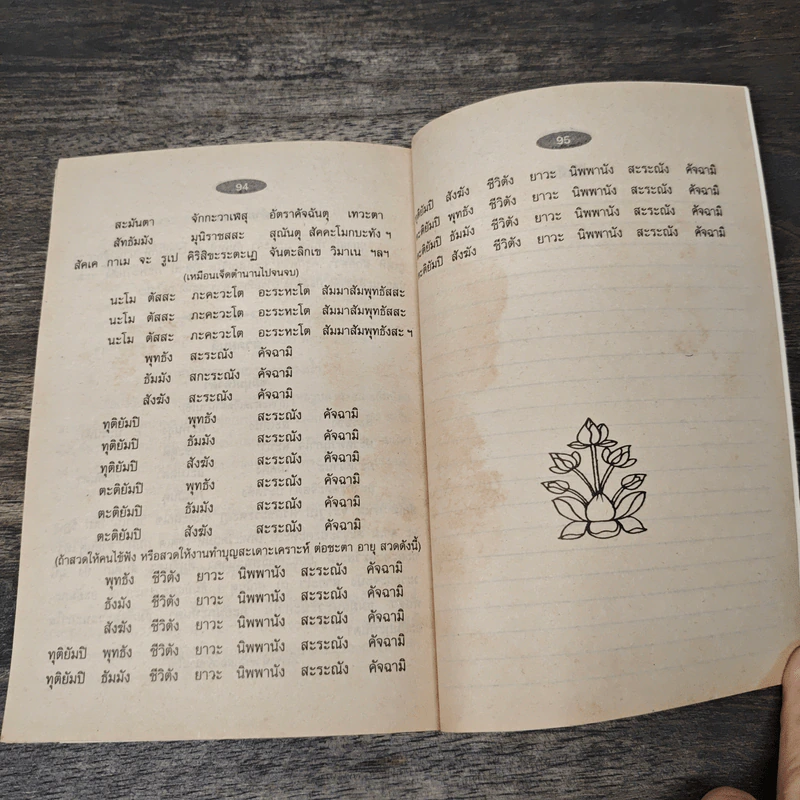 94
สะมันตา จักกะวาเฬสุ อัตราคัจฉันตุ เทวะตา
สัทธัมมัง มุนิราชสสะ สุณันตุ สัคคะโมกบะทัง ฯ
สัคเค กาเม จะ รูเป คิริสิขะระตะเฏ จันตะลิกเข วิมาเน ฯลฯ
(เหมือนเจ็ดตำนานไปจนจบ)
นะโม ตัสสะ ภะคะวะโต อะระหะโต สัมมาสัมพุทธัสสะ
นะโม ตัสสะ ภะคะวะโต อะระหะโต สัมมาสัมพุทธัสสะ
นะโม ตัสสะ ภะคะวะโต อะระหะโต สัมมาสัมพุทธังสะ ฯ
พุทธัง สะระณัง คัจฉามิ
ธัมมัง สกะระณัง คัจฉามิ
สังฆัง สะระณัง คัจฉามิ
ทุติยัมปิ พุทธัง สะระณัง คัจฉามิ
ทุติยัมปิ ธัมมัง สะระณัง คัจฉามิ
ทุติยัมปิ สังฆัง สะระณัง คัจฉามิ
ตะติยัมปิ พุทธัง สะระณัง คัจฉามิ
ตะติยัมปิ ธัมมัง สะระณัง คัจฉามิ
ตะติยัมปิ สังฆัง สะระณัง คัจฉามิ
(ถ้าสวดให้คนไข้ฟัง หรือสวดให้งานทำบุญสะเดาะเคราะห์ ต่อชะตา อายุ สวดดังนี้)
พุทธัง ชีวิตัง ยาวะ นิพพานัง สะระณัง คัจฉามิ
ธังมัง ชีวิตัง ยาวะ นิพพานัง สะระณัง คัจฉามิ
สังฆัง ชีวิตัง ยาวะ นิพพานัง สะระณัง คัจฉามิ
ทุติยัมปิ พุทธัง ชีวิตัง ยาวะ นิพพานัง สะระณัง คัจฉามิ
ทุติยัมปิ ธัมมัง ชีวิตัง ยาวะ นิพพานัง สะระณัง คัจฉามิ
95
สังฆัง ชีวิตัง ยาวะ นิพพานัง สะระณัง คัจฉามิ
พุทธัง ชีวิตัง ยาวะ นิพพานัง สะระณัง คัจฉามิ
ธัมมัง ชีวิตัง ยาวะ นิพพานัง สะระณัง คัจฉามิ
สังฆัง ชีวิตัง ยาวะ นิพพานัง สะระณัง คัจฉามิ